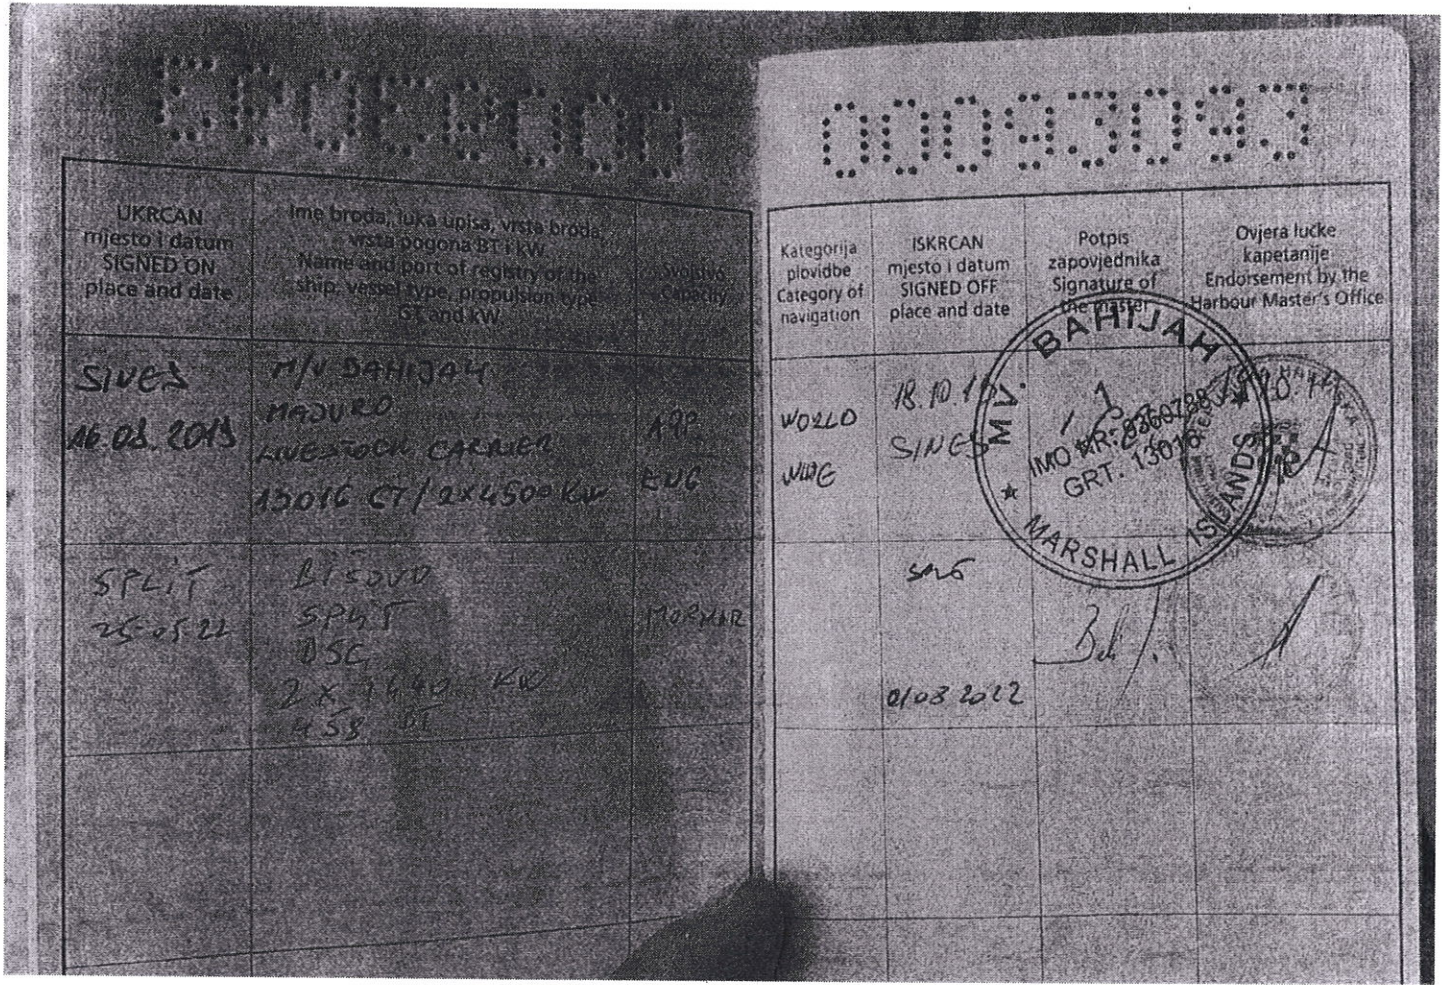 00093093
UKRCAN
mjesto i datum
SIGNED ON
place and date
Ime broda, luka upisa, vrsta broda,
vrsta pogona BT i kW
Name and port of registry of the
ship, vessel type, propulsion type
GT and kW
Svojstvo
Capacity
SINES
2019
M/V BAHIJAH
MAJURO
LIVESTOCK CARRIER
13016 GT / 2x4500 KW
APP.
ENG
SPLIT
25 05 22
BISOVO
SPLIT
2 x 1440 KW
458 BT
MORNAR
00093093
Kategorija
plovidbe
Category of
navigation
ISKRCAN
mjesto i datum
SIGNED OFF
place and date
Potpis
zapovjednika
Signature of
the master
Ovjera lučke
kapetanije
Endorsement by the
Harbour Master's Office
WORLD
WIDE
18.10.
SINES
MV. BAHIJAH
IMO NR: 9360788
GRT. 13016
MARSHALL ISLANDS
2022